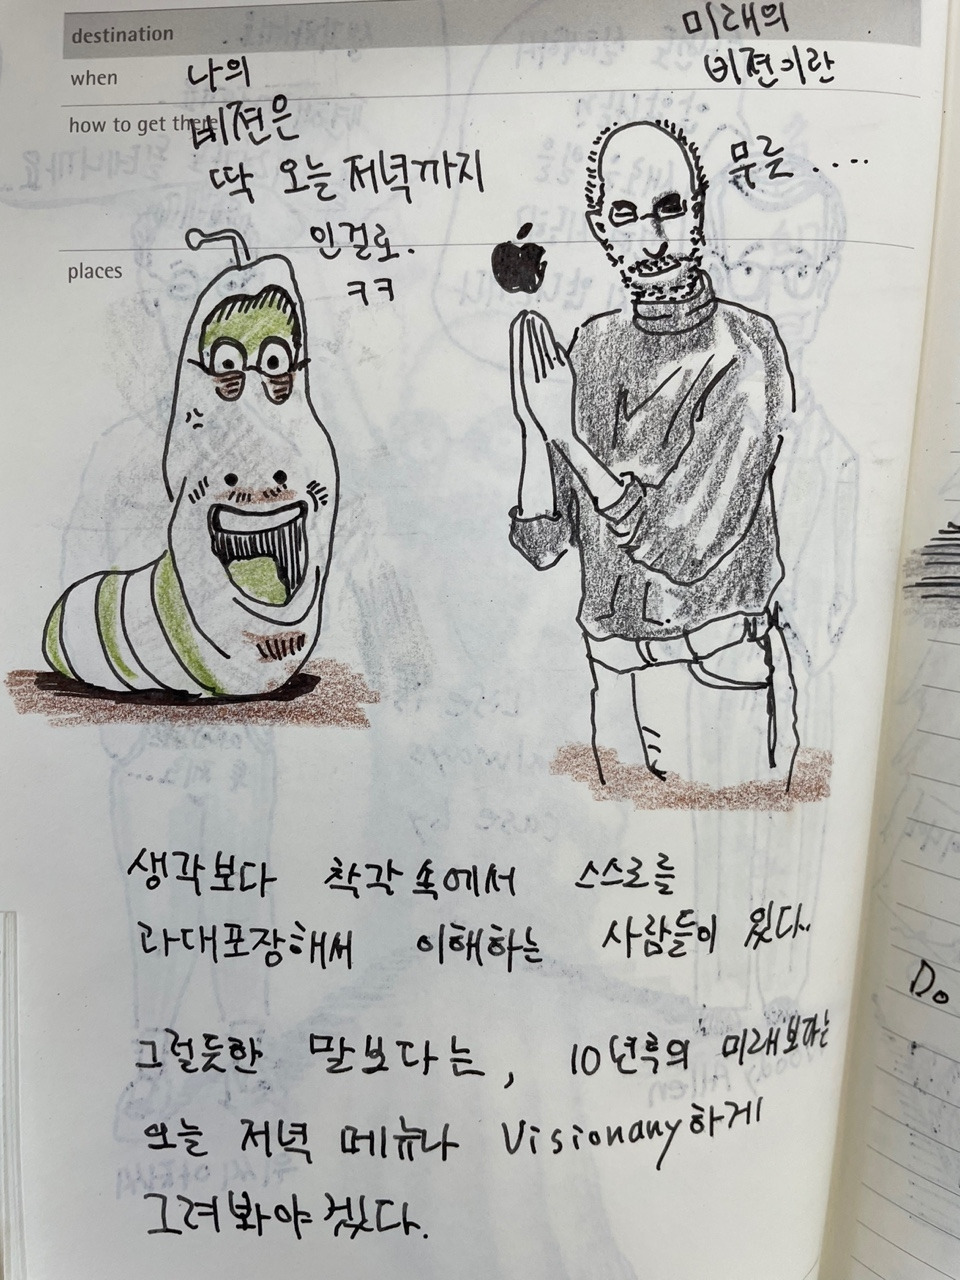 destination
when
how to get there
places
나의
비젼은
딱 오늘 저녁까지
인걸로.
ㅋㅋ
미래의
비젼이란
무릇....
생각보다 착각속에서 스스로를
과대포장해서 이해하는 사람들이 있다.
그럴듯한 말보다는, 10년후의 미래보다는
오늘 저녁 메뉴나 Visionany하게
그려봐야겠다.
Do